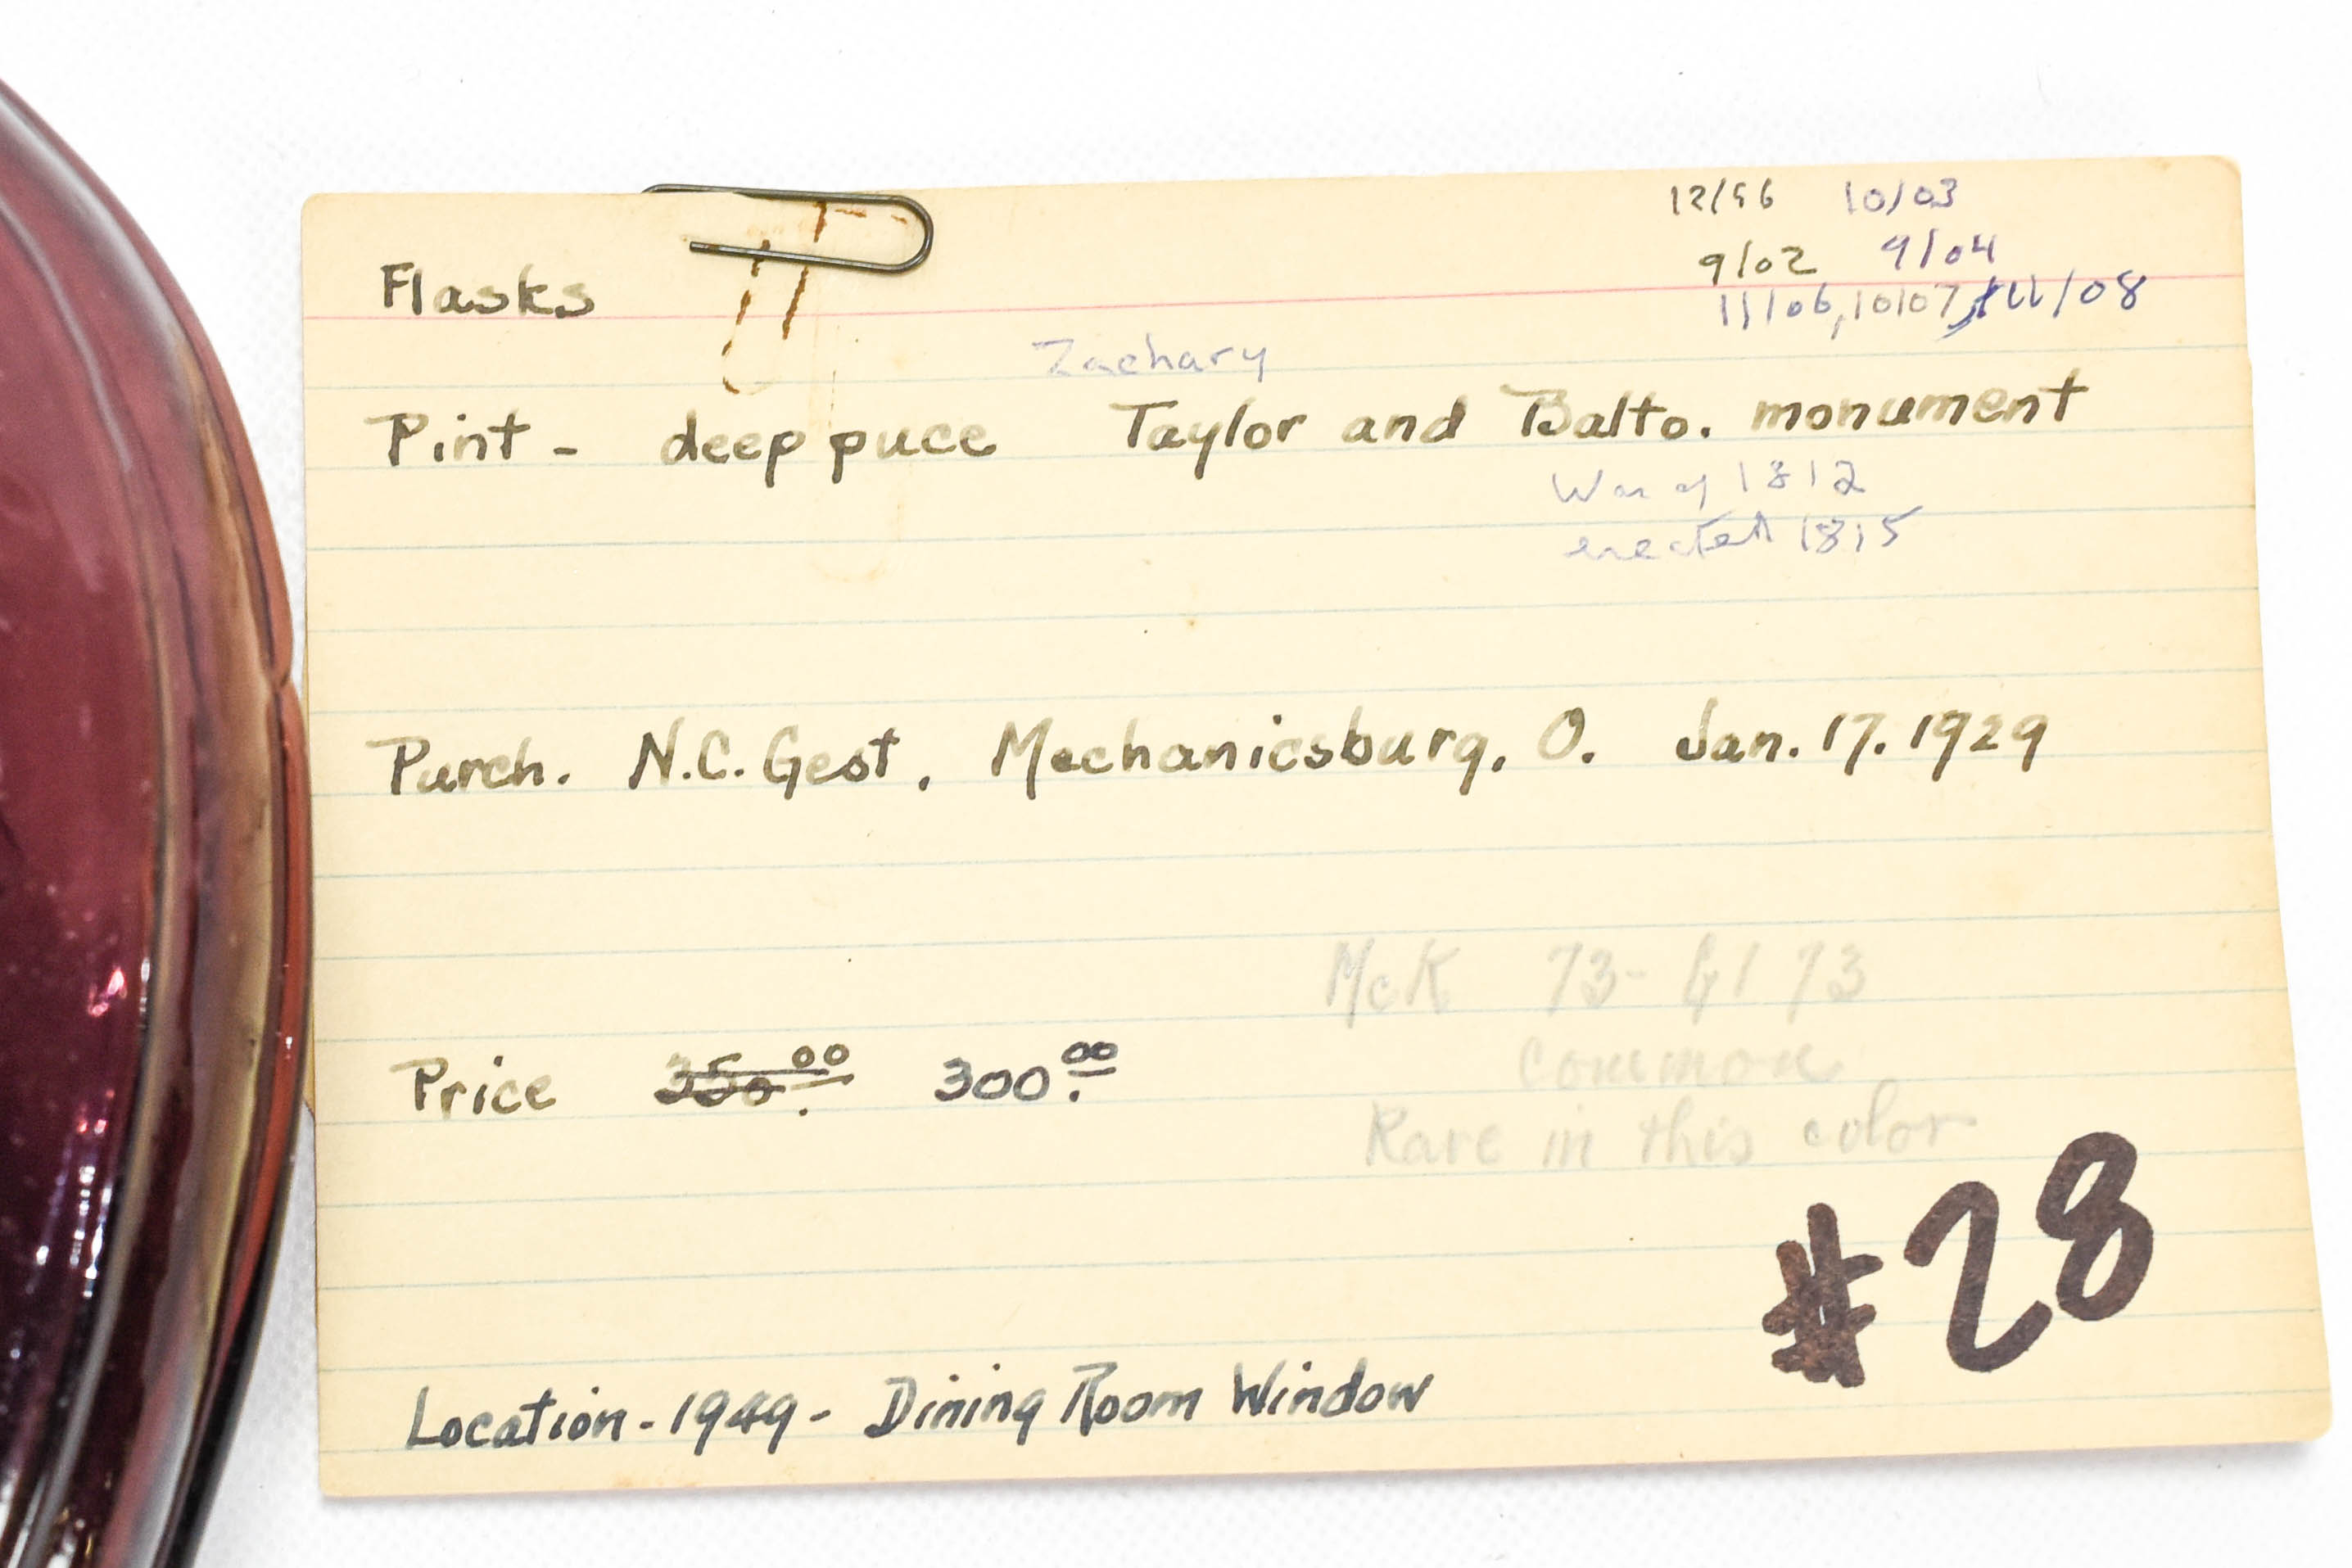 12/96 10/03
9/02 9/04
Flasks
11/06, 10/07, 11/08
Zachary
Pint - deep puce Taylor and Balto. monument
War of 1812
erected 1815
Purch. N.C. Gest, Mechanicsburg, O. Jan. 17. 1929
McK 73 - GI 73
Common
Price 350.00 300.00
Rare in this color
#28
Location - 1949 - Dining Room Window